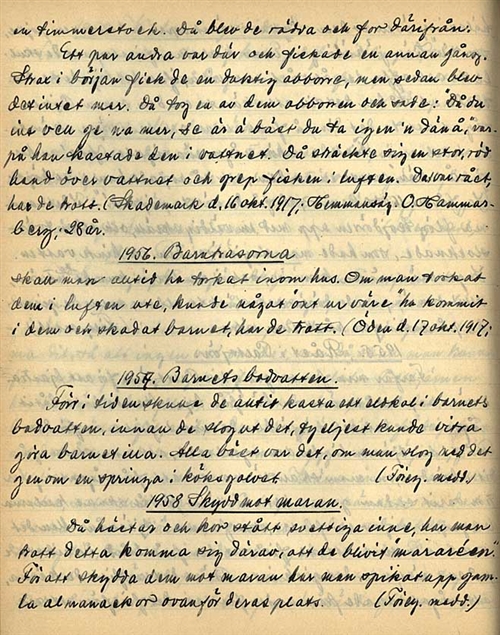 en timmerstock. Då blev de rädda och for därifrån.
Ett par andra var där och fiskade en annan gång.
Strax i början fick de en duktig abborre, men sedan blev
det intet mer. Då tog en av dem abborren och sade: "Då du
int vell ge na mer, se är å bäst du ta igen 'n dänå," var-
på han kastade den i vattnet. Då sträckte sig en stor, röd
hand över vattnet och grep fisken i luften. Det var rået,
har de trott. (Skademark d. 16 okt. 1917; Hemmansäg. O. Hammar-
berg, 28 år.
1956. Barntrasorna
skall man alltid ha torkat inom hus. Om man torkat
dem i luften ute, kunde något "ont ur väre" ha kommit
i dem och skadat barnet, har de trott. (Öden d. 17 okt. 1917;
1957. Barnets badvatten.
Förr i tiden skulle de alltid kasta ett eldkol i barnets
badvatten, innan de slog ut det, ty eljest kunde vitra
göra barnet illa. Allra bäst var det, om man slog ned det
genom en springa i köksgolvet (Föreg. medd.)
1958 Skydd mot maran.
Då hästar och kor stått svettiga inne, har man
trott detta komma sig därav, att de blivit "mararéen".
För att skydda dem mot maran har man spikat upp gam-
la almanackor ovanför deras plats. (Föreg. medd.)